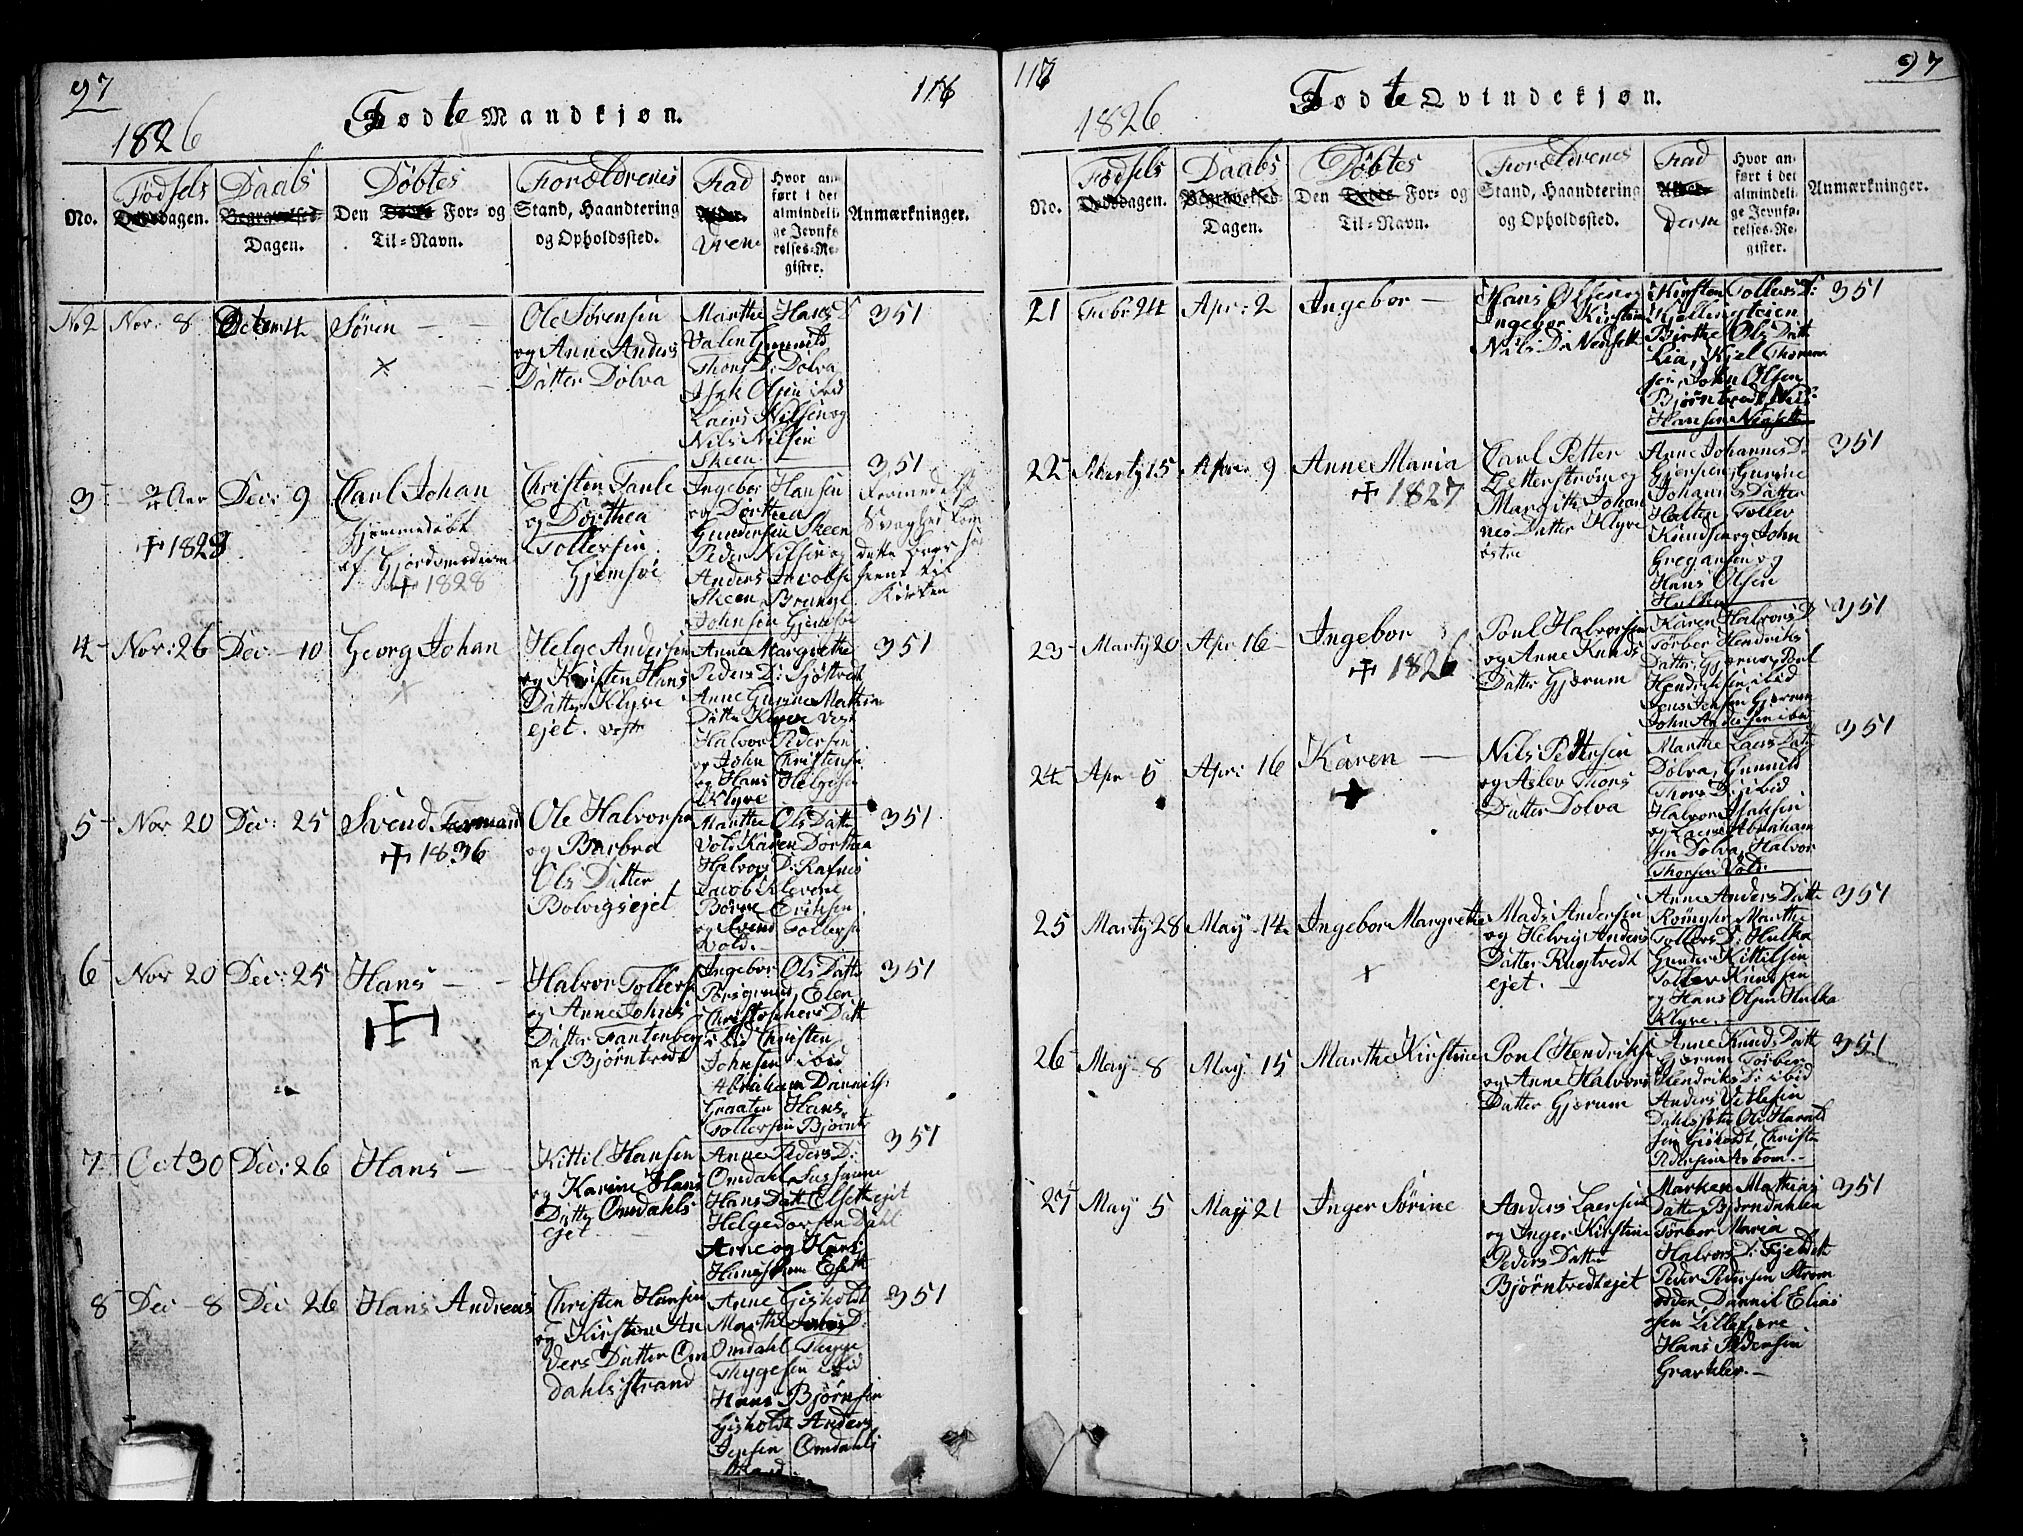 97
116
Fødte Mandkjøn.
1826
No.
Fødsels
Dagen.
Daabs
Dagen.
Døbtes
Den For- og
Til-Navn.
Forældrenes
Stand, Haandtering
og Opholdssted.
Fad
drene
Hvor an-
ført i det
almindeli-
ge Jevnfø-
relses-Re-
gister.
Anmærkninger.
No 2 Nov: 8
Søren
Ole Sørensen
og Anne Anders
Datter Dolva
Marthe Hans D
Valen Gunnild
Thors D: Dolva
Isak Olsen ibid
Laers Nilsen og
Nils Nilsen
Skeen
351
3
Dec: 9
Carl Johan
Hjemmedøbt
af Gjordemoderen
+ 1828
Christen Faule
og Dorthea
Tollefsen
Gjemsøe
Ingebor Hansen
og Dorthea
Gundersen Skeen
Peder Nilsen og
Anders Jacobse
Skeen
Johnsen Gjemsøe
351
Formedelst
Svaghed kom
dette Barn saa
seent til
Kirken
4 Nov: 26 Dec: 10
Georg Johan
Helge Andersen
og Kirsten Hans
Datter Klyve
ejet. vestr
Anne Margrethe
Peders D: Sjøtvedt
Anne Gurine Mathia
Datter Klyve vest
Halvor Pedersen
og John Christense
og Hans Helgesen
Klyve
351
5 Nov 20 Dec: 25
Svend
+ 1836
Ole Halvorsen
og Barbra
Ols Datter
Bolvigsejet
Marthe Ols Datte
Vold Karen Dorthea
Halvors D: Rafnes
Jacob Klevene
Børre Eriksen
og Svend Tollefse
Vold.
351
6 Nov 20 Dec: 25
Hans
Halvor Tollefs
og Anne Johns
Datter Fantenberg
af Bjørntvedt
Ingebor Ols Datte
Porsgrund, Elen
Christophers Datt
ibid Christen
Johnsen ibid
Abraham Danniels
Graaten Hans
Tollefsen Bjørnt
351
7 Oct 30 Dec: 26
Hans
Kittil Hansen
og Karine Hans
Datter Omdahls
ejet
Anne Peders D:
Omdahl Susanne
Hans Datt Elsethejet
Helge Torsen Dahl
Arne og Hans
351
8 Dec 8 Dec 26
Hans Andreas
Christen Hansen
og Kirsten An
ders Datter Om
dahlsstrand
Anne Gisholdt
Marthe D:
Omdahl Thyge
Thygesen ibid
Hans Bjørnsen
Gisholdt Anders
Jensen Omdahls
strand
351
117
97
Fødte Qvindekjøn.
1826
No.
Fødsels
Dagen.
Daabs
Dagen.
Døbtes
Den For- og
Til-Navn.
Forældrenes
Stand, Haandtering
og Opholdssted.
Fad
derne
Hvor an-
ført i det
almindeli-
ge Jevnfø-
relses-Re-
gister.
Anmærkninger.
21 Febr: 24 Apr: 2
Ingebor
Hans Olsen og
Ingebor Kirstine
Nils D: Nenset
Kirsten Tollefs D:
Kjøllingteien
Birthe Ols Datt
Lia, Kjel Thomas
sen, John Olsen
Bjørntvedt, Nils
Hansen Nenset
351
22 Marty 15 9
Anne Maria
+ 1827
Carl Petter
Zetterstrøm og
Margith Johan
nes Datter Klyve
østre
Anne Johannes D:
Gjersen, Gurine
Johannes Datter
Halten Tollev
Knudsen og John
Gregarsen og
Hans Olsen
Hulken
351
23 Marty 20 Apr 16
Ingebor
+ 1826
Poul Halvorsen
og Anne Knuds
Datter Gjerum
Karen Halvors D:
Tørber Hendriks
Datter Gjerum, Poul
Hendriksen ibid
Jens Jensen Gjerum
John Andersen ibid
351
24 Apr 5 Apr: 16
Karen
Nils Pettersen
og Aslev Thors
Datter Dolva
Marthe Laers Datt
Dolva, Gunnild
Thors D: ibid
Halvor Isaksen
og Laers Abraham
sen Dolva, Halvor
Thorsen Vold.
351
25 Marty 28 May 14
Ingebor Margrethe
Mads Andersen
og Helvig Anders
Datter Rugtvedt
ejet.
Anne Anders Datte
Marthe
Tollefs D: Hulka
Gunder Kittilsen
Tollev Knudsen
og Hans Olsen Hulka
Klyve.
351
26 May 8 May 15
Marthe Kirstine
Poul Hendrikse
og Anne Halvors
Datter Gjerum
Anne Knuds Datt
Gjerum Tørber
Hendriks D: ibid
Anders Detlefsen
Ole Harald
sen Gisholdt, Christen
Pedersen Aabom.
351
27 May 5 May 21
Inger Sørine
Anders Laersen
og Inger Kirstine
Peders Datter
Bjørntvedtejet
Marken Mathias
Datter Bjørndahlen
Tørber Maria
Halvors D: Fjeldet
Peder Pedersen Strom
odden Danniel Elias
sen Lillefjære
Hans Pedersen
Gravklev.
351